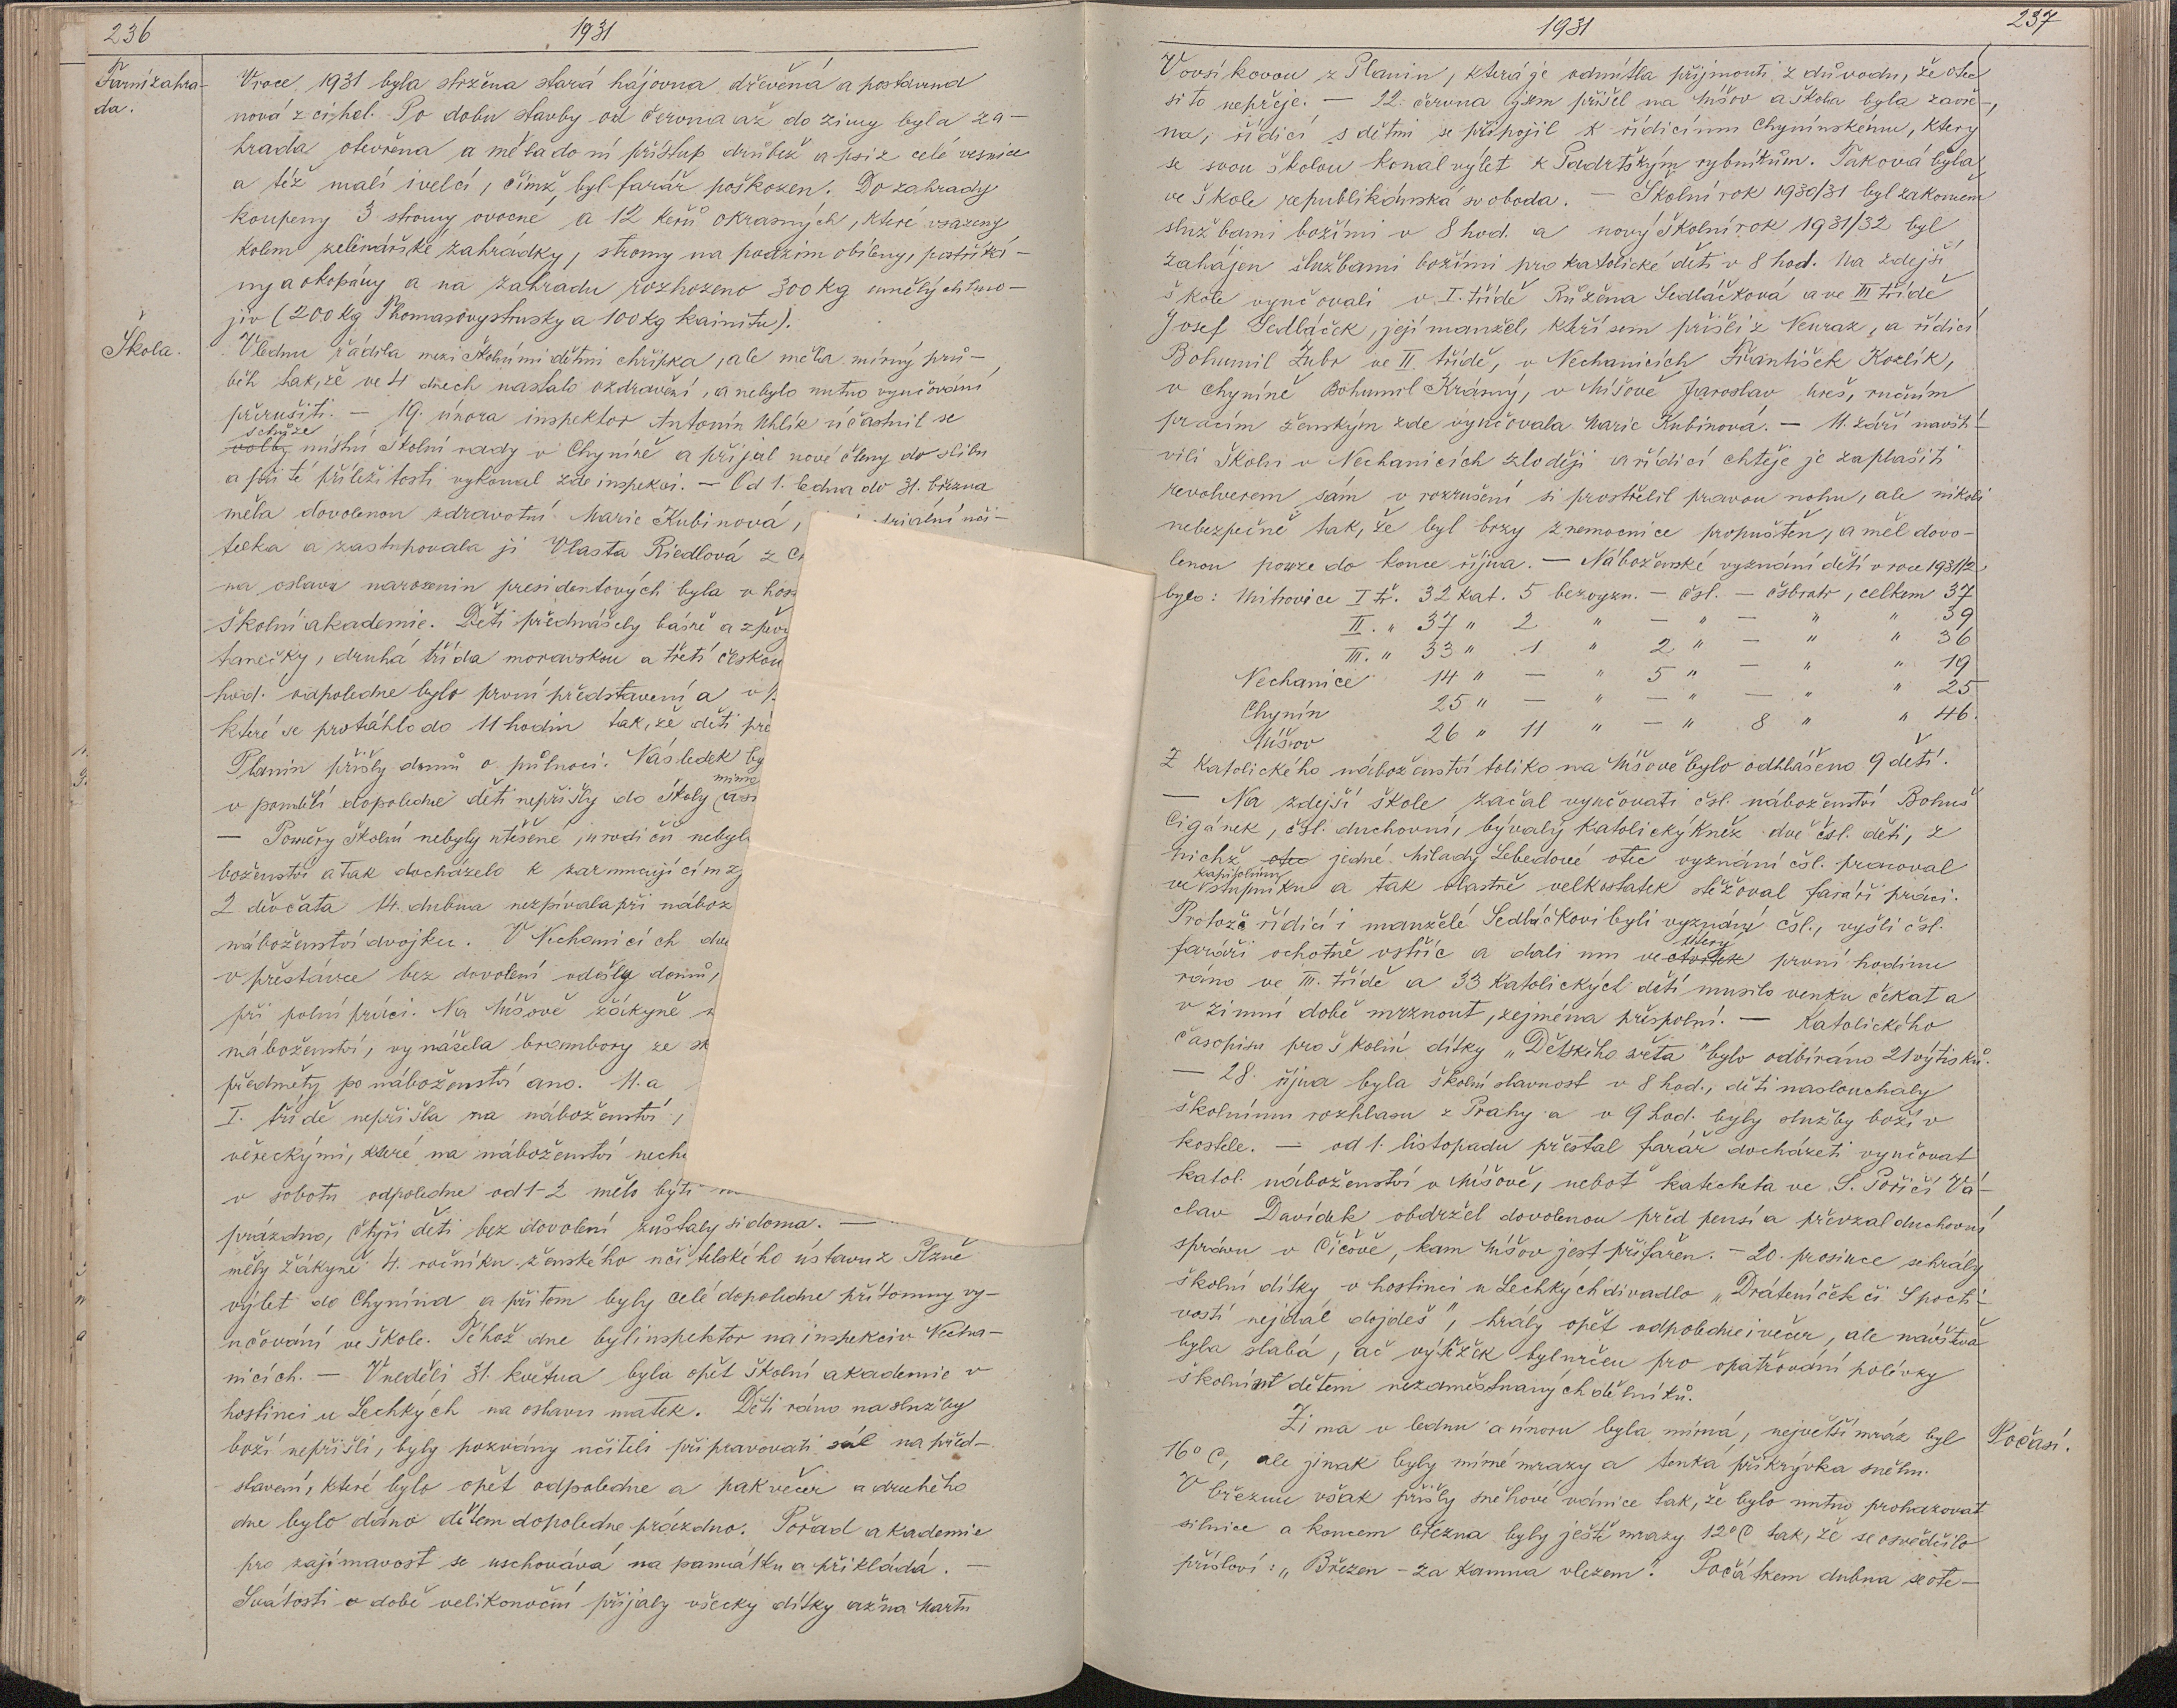 236
1931
Farní zahra-
da.
V roce 1931 byla stržena stará hájovna dřevěná a postavena
nová z cihel. Po dobu stavby od června až do zimy byla za-
hrada otevřena a měla do ní přístup drůbež a psi z celé vesnice
a též malí i velcí, čímž byl farář poškozen. Do zahrady
koupeny 3 stromy ovocné a 12 keřů okrasných, které vsazeny
kolem zelinářské zahrádky, stromy na podzim obíleny, postříká-
ny a okopány a na zahradu rozhozeno 300 kg umělých hno-
jiv (200 kg Thomasovy strusky a 100 kg kainitu).
Škola.
V lednu řádila mezi školními dětmi chřipka, ale měla mírný prů-
běh tak, že ve 4 dnech nastalo ozdravění, a nebylo nutno vyučování
přerušiti. — 19. února inspektor Antonín Uhlík účastnil se
schůze
volby místní školní rady v Chyníně a přijal nové členy do slibu
a při té příležitosti vykonal zde inspekci. — Od 1. ledna do 31. března
měla dovolenou zdravotní Marie Kubinová, uči-
telka a zastupovala ji Vlasta Riedlová z
na oslavu narozenin presidentových byla v hos
školní akademie. Děti přednášely básně a zpěvy
tanečky, druhá třída moravskou a třetí českou
hod. odpoledne bylo první představení a v
které se protáhlo do 11 hodin tak, že děti
Planin přišly domů o půlnoci. Následek by
mimo
v pondělí dopoledne děti nepřišly do školy
— Poměry školní nebyly utěšené, u rodičů nebylo
boženství a tak docházelo k zarmucujícím
2 děvčata 14. dubna nezpívala při nábož
náboženství dvojku. V Nechanicích
v přestávce bez dovolení odešly domů,
při polní práci. Na Míšově žákyně
náboženství, vynášela brambory ze
předměty po náboženství ano. 11. a
I. třídě nepřišla na náboženství,
věreckými, které na náboženství
v sobotu odpoledne od 1-2 mělo býti
prázdno, čtyři děti bez dovolení zůstaly si doma. —
měly žákyně 4. ročníku ženského učitelského ústavu z Plzně
výlet do Chynína a při tom byly celé dopoledne přítomny vy-
učování ve škole. Téhož dne byl inspektor na inspekci v Necha-
nicích. — V neděli 31. května byla opět školní akademie v
hostinci u Lechkých na oslavu matek. Děti ráno na služby
boží nepřišli, byly pozvány učiteli připravovati sál na před-
stavení, které bylo opět odpoledne a pak večer a druhého
dne bylo dáno dětem dopoledne prázdno. Pořad akademie
pro zajímavost se uschovává na památku a přikládá. —
Svátosti v době velikonoční přijaly všecky dítky až na Martu
1931
237
Vovsíkovou z Planin, která je odmítla přijmouti z důvodu, že otec
si to nepřeje. — 22. června jsem přišel na Míšov a škola byla zavře-
na, řídící s dětmi se připojil k řídícímu Chynínskému, který
se svou školou konal výlet k Padrtským rybníkům. Taková byla
ve škole republikánská svoboda. — Školní rok 1930/31 byl zakončen
službami božími v 8 hod. a nový školní rok 1931/32 byl
zahájen službami božími pro katolické děti v 8 hod. Na zdejší
škole vyučovali v I. třídě Růžena Sedláčková a ve III třídě
Josef Sedláček, její manžel, kteří sem přišli z Neuraz, a řídící
Bohumil Zubr ve II třídě, v Nechanicích František Kozlík,
v Chyníně Bohumil Krásný, v Míšově Jaroslav Ureš, ručním
pracím ženským zde vyučovala Marie Kubinová. — 11. září navští-
vili školu v Nechanicích zloději a řídící chtěje je zaplašiti
revolverem sám v rozrušení si prostřelil pravou nohu, ale nikoli
nebezpečně tak, že byl brzy z nemocnice propuštěn, a měl dovo-
lenou pouze do konce října. — Náboženské vyznání dětí v roce 1931/2
bylo: Mitrovice I tř. 32 kat. 5 bezvyzn. — čsl. — čsbratr, celkem 37
II. " 37 " 2 " — " — " " 39
III. " 33 " 1 " 2 " — " " 36
Nechanice 14 " — " 5 " — " " 19
Chynín 25 " — " — " — " " 25
Míšov 26 " 11 " — " 8 " " 46.
Z katolického náboženství toliko na Míšově bylo odhlášeno 9 dětí.
— Na zdejší škole začal vyučovati čsl. náboženství Bohuš
Cigánek, čsl. duchovní, bývalý katolický kněz dvě čsl. děti, z
nichž otec jedné Milady Lebedové otec vyznání čsl. pracoval
kapitolním
ve Stupníku a tak vlastně velkostatek stěžoval faráři práci.
Protože řídící i manželé Sedláčkovi byli vyznání čsl., vyšli čsl.
úterý
faráři ochotně vstříc a dali mu ve čtvrtek první hodinu
ráno ve III. třídě a 33 katolických dětí musilo venku čekat a
v zimní době mrznout, zejména přespolní. — Katolického
časopisu pro školní dítky „Dětského světa" bylo odbíráno 21 výtisků.
— 28. října byla školní slavnost v 8 hod., děti naslouchaly
školnímu rozhlasu z Prahy a v 9 hod. byly služby boží v
kostele. — od 1. listopadu přestal farář docházeti vyučovat
katol. náboženství v Míšově, neboť katecheta ve S. Poříčí Vá-
clav Davídek obdržel dovolenou před pensí a převzal duchovní
správu v Číčově, kam Míšov jest přifařen. — 20. prosince sehrály
školní dítky v hostinci u Lechkých divadlo „Dráteníček či S pocti-
vostí nejdál dojdeš", hrály opět odpoledne i večer, ale návštěva
byla slabá, ač výtěžek byl určen pro opatřování polévky
školním dětem nezaměstnaných dělníků.
Počasí.
Zima v lednu a únoru byla mírná, největší mráz byl
16° C, ale jinak byly mírné mrazy a tenká přikrývka sněhu.
V březnu však přišly sněhové vánice tak, že bylo nutno prohazovat
silnice a koncem března byly ještě mrazy 12° C tak, že se osvědčilo
přísloví: „Březen - za kamna vlezem". Počátkem dubna se ote-